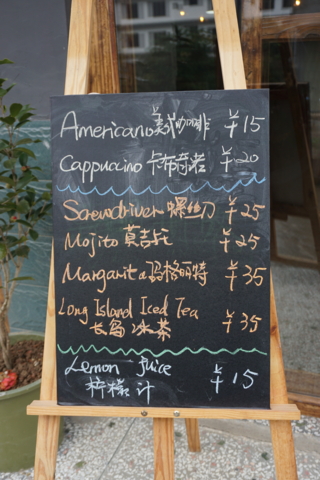 Americano美式咖啡 ¥15
Cappuccino 卡布奇诺 ¥20
Screwdriver 螺丝刀 ¥25
Mojito 莫吉托 ¥25
Margarita玛格丽特 ¥35
Long Island Iced Tea
长岛冰茶 ¥35
Lemon Juice
柠檬汁 ¥15